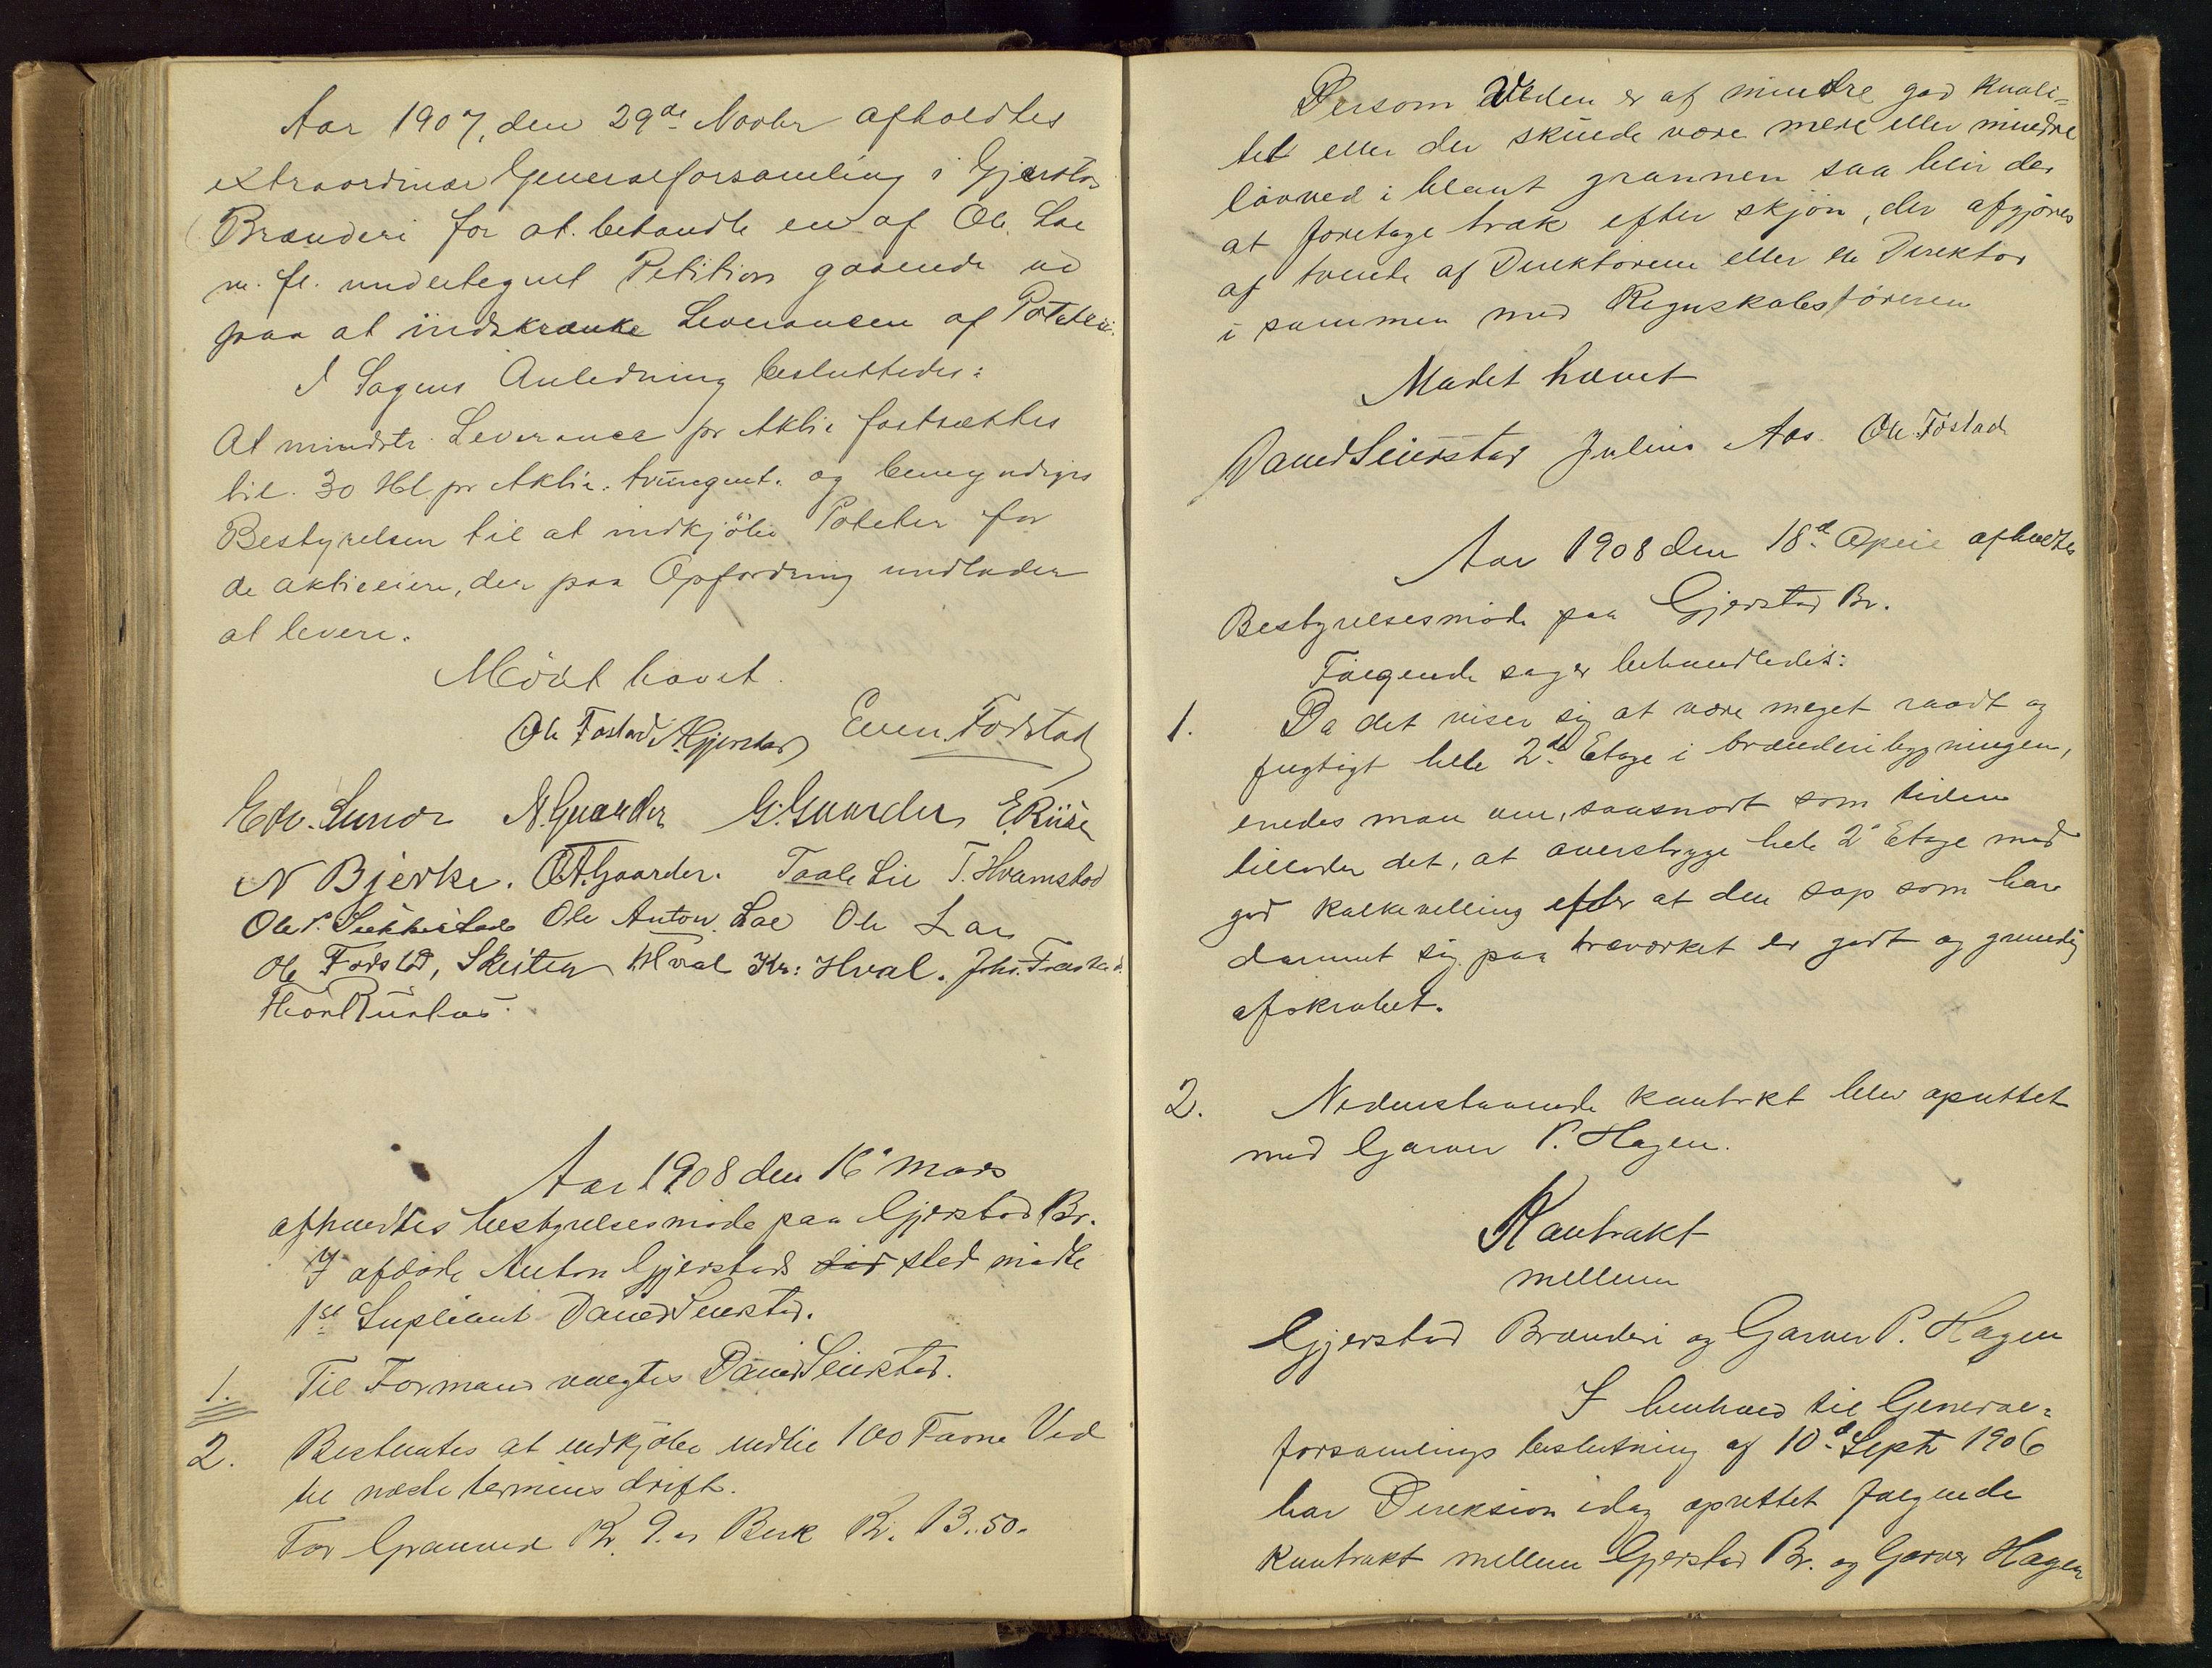 Aar 1907, den 29de Novbr afholdtes
extraordinær Generalforsamling i Gjerstad
Brænderi for at behandle en af Ole Lae
m. fl. undertegnet Petition gaaende ud
paa at indskrænke Leverancen af Poteter.
I Sagens Anledning besluttedes:
At mindste Leverance pr Aktie fastsættes
til 30 Hl pr Aktie tvungent og bemyndiges
Bestyrelsen til at indkjøbe Poteter for
de aktieeiere, der paa Opfordring undlader
at levere.
Mödet hævet.
Ole Fostad A. Gjerstad Even Fodstad
Edv. N. Gaarder G. Gaarder E. Riise
N Bjerke. O.A. Gaarder. Taale Lie T. Hvamstad
Ole P. Ole Anton Lae Ole Lae
Ole Fodstad, Skeiten Hval Kr: Hval. Johs. Frestad.
Thorl
Aar 1908 den 16de Mars
afholdtes bestyrelsesmöde paa Gjerstad Br.
I afdöde Anton Gjerstads sted mödte
1ste Supleant Daniel Seierstad.
1. Til Formand valgtes Daniel Seierstad.
2. Besluttes at indkjöbe indtil 100 Favne Ved
til næste termins drift.
For Granved Kr. 9. Birk Kr. 13.50.
Dersom Veden er af mindre god kvali=
tet eller der skulde være mere eller mindre
lövved i blant grannen saa blir der
at foretage træk efter skjön, der afgjöres
af tvende af Direktörerne eller en Direktör
i sammen med Regnskabsföreren
Mödet hævet
Daniel Seierstad Julius Aas Ole Fostad
Aar 1908 den 18de April afholdtes
Bestyrelsesmöde paa Gjerstad Br.
Fölgende sager behandledes:
1. Da det viser sig at være meget raadt og
fugtigt hele 2den Etage i brænderibygningen,
enedes man om, saasnart som tiden
tillader det, at overstryge hele 2den Etage med
god kalkevelling efter at den sop som har
dannet sig paa træværket er godt og grundig
afskrabet.
2. Nedenstaaende kontrakt blev oprettet
med Garver P. Hagen.
Kontrakt
mellem
Gjerstad Brænderi og Garver P. Hagen
I henhold til General=
forsamlings beslutning af 10de Septr 1906
har Direksion idag oprettet fölgende
Kontrakt mellem Gjerstad Br. og Garver Hagen